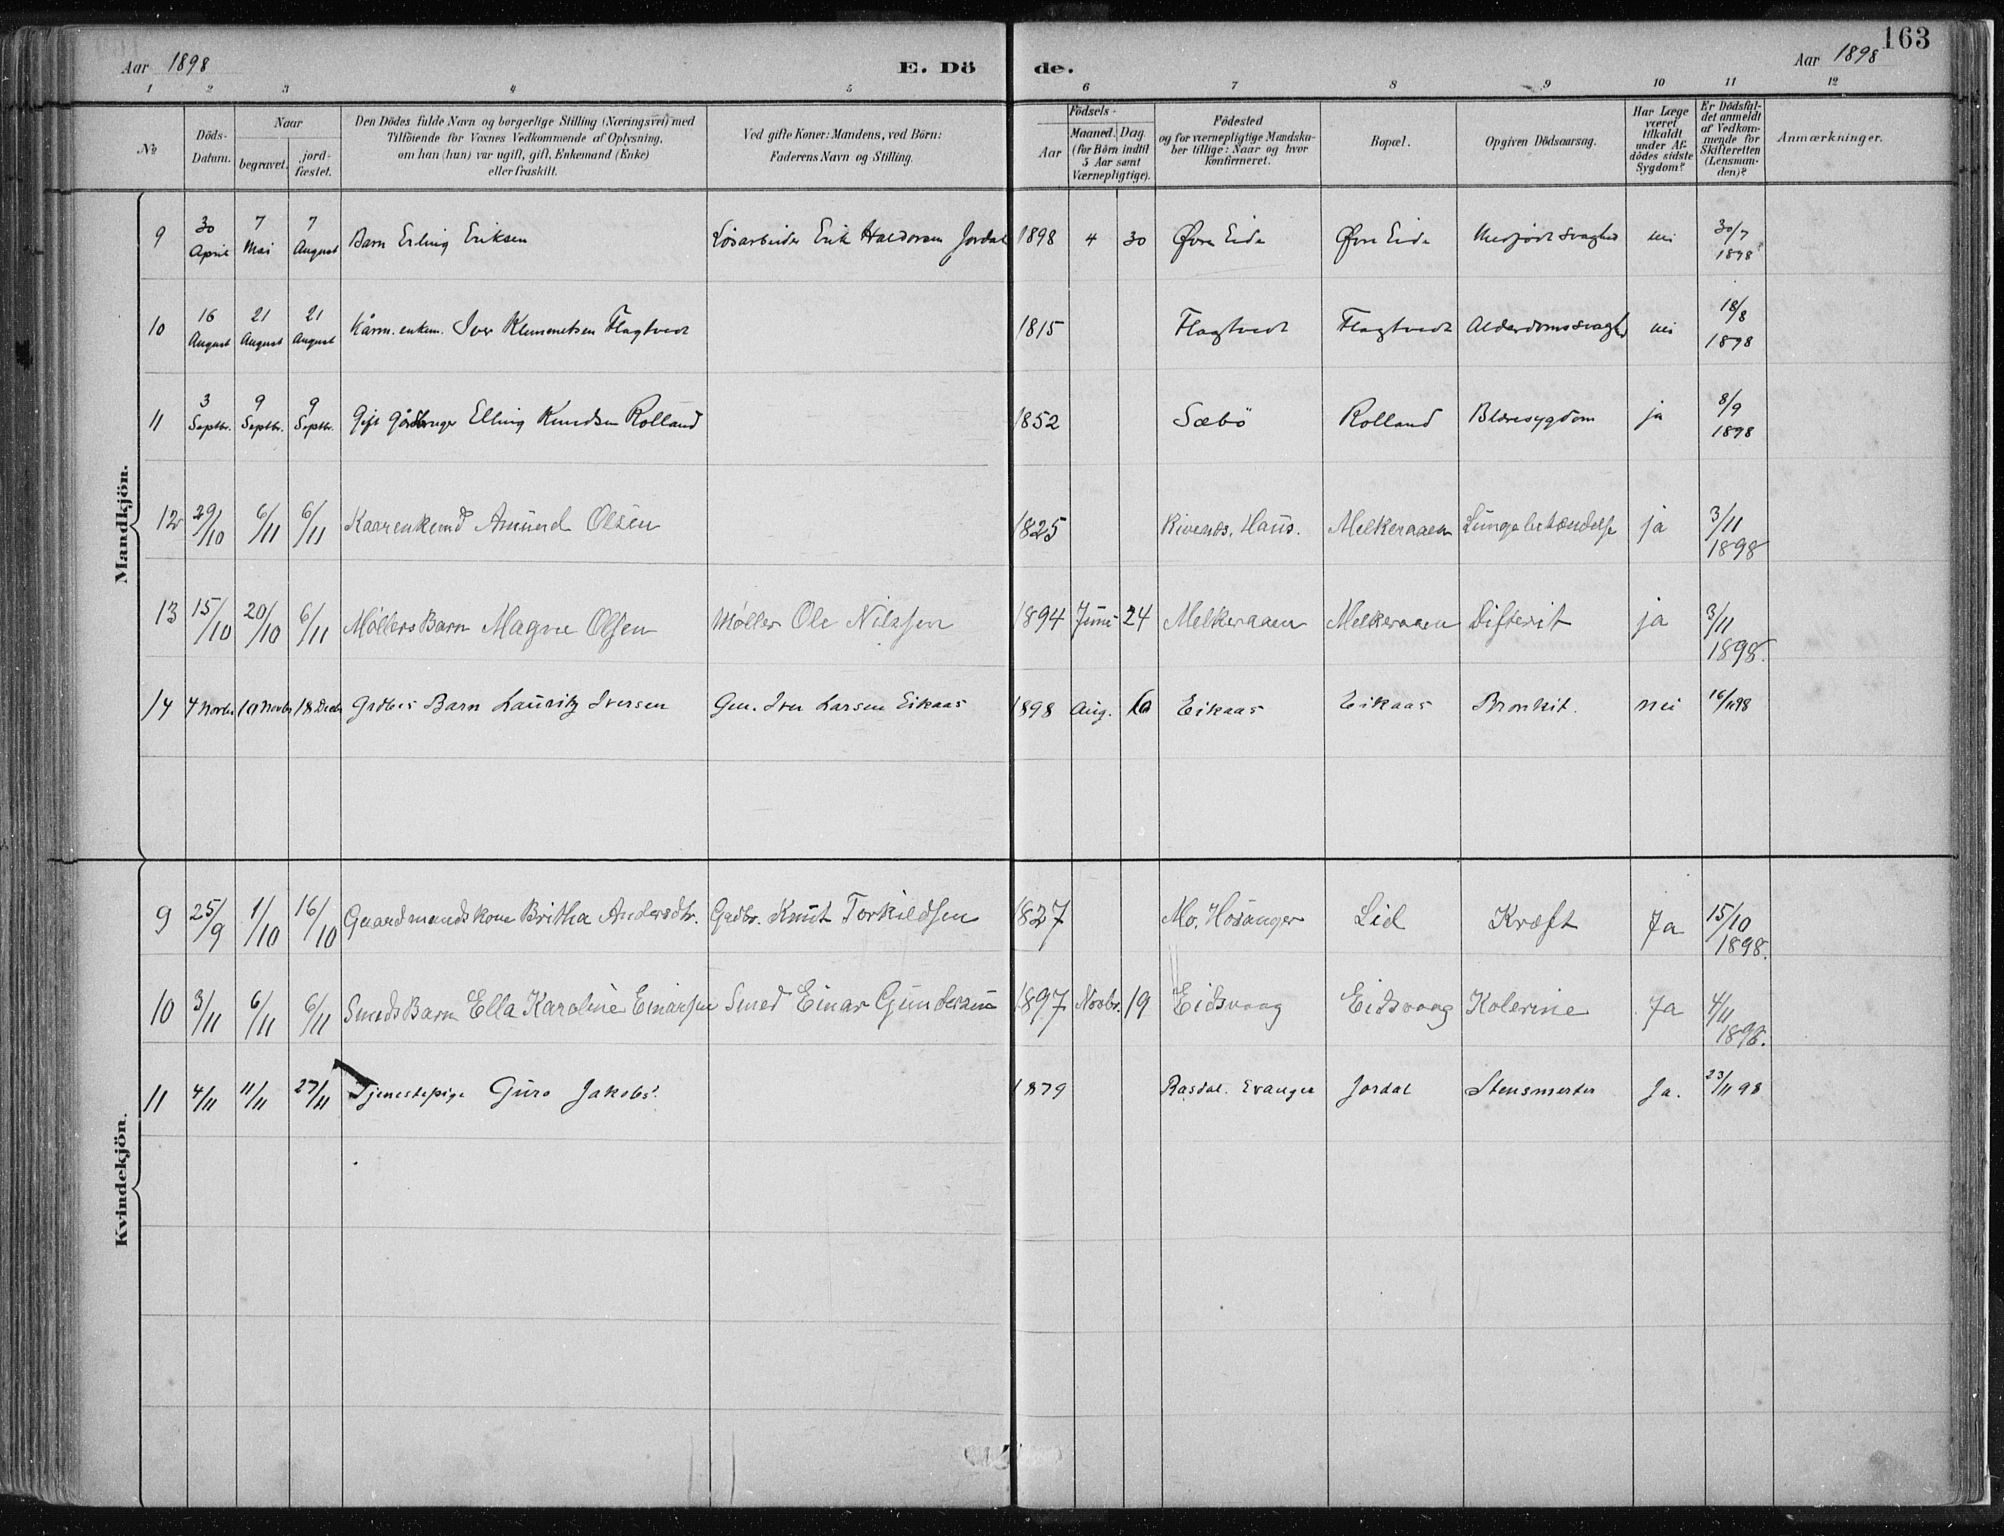 163
Aar 1898
E. Dö
de.
Aar 1898
1 2 3 4 5 6 7 8 9 10 11 12
No
Döds-Datum.
Naar
begravet.
jord-fæstet.
Den Dödes fulde Navn og borgerlige Stilling (Næringsvei) med
Tilföiende for Voxnes Vedkommende af Oplysning,
om han (hun) var ugift, gift, Enkemand (Enke)
eller fraskilt.
Ved gifte Koner: Mandens, ved Börn:
Faderens Navn og Stilling.
Födsels-
Aar
Maaned. Dag.
(for Börn indtil
5 Aar samt
Værnepligtige).
Födested
og for værnepligtige Mandska-
ber tillige: Naar og hvor
konfirmeret.
Bopæl.
Opgiven Dödsaarsag.
Har Læge
været
tilkaldt
under Af-
dödes sidste
Sygdom?
Er Dödsfal-
det anmeldt
af Vedkom-
mende for
Skifteretten
(Lensman-
den)?
Anmærkninger.
Mandkjön.
9 30 April 7 Mai 7 August Barn Erling Eriksen Løsarbeider Erik Haldorsen Jordal 1898 4 30 Øvre Eide Øvre Eide Medfødt Svaghed nei 30/7 1898
10 16 August 21 August 21 August Kårm. enkem. Iver Klemmetsen Flagtvedt 1815 Flagtvedt Flagtvedt Alderdomssvaghed nei 18/8 1898
11 3 Septbr. 9 Septbr. 9 Septbr. Gift Gårdbruger Elling Knudsen Rolland 1852 Sæbö Rolland Blæresygdom ja 8/9 1898
12 29/10 6/11 6/11 Kaarenkemd Amund Olsen 1825 Kivenes, Haus. Melkeraaen Lungebetændelse ja 3/11 1898
13 15/10 20/10 6/11 Møllers Barn Magne Olsen Møller Ole Nilssen 1894 Juni 24 Melkeraaen Melkeraaen Difterit ja 3/11 1898.
14 4 Novbr 10 Novbr 18 Decbr Gadbrs Barn Lauritz Iversen Gm. Iver Larsen Eikaas 1898 Aug. Eikaas Eikaas Bronkit. nei 16/11 98
Kvindekjön.
9 25/9 1/10 16/10 Gaardmandskone Britha Andersdtr. Gadbr. Knut Torkildsen 1827 Mo, Hosanger Lid Kræft Ja 15/10 1898.
10 3/11 6/11 6/11 Smeds Barn Ella Karoline Einarsen Smed Einar Gundersen 1897 Novbr. 19 Eidsvaag Eidsvaag Kolerine Ja 4/11 1898.
11 4/11 11/11 27/11 Tjenestepige Guro Jakobs: 1879 Rasdal. Evanger Jordal Stensmerter Ja. 23/11 98